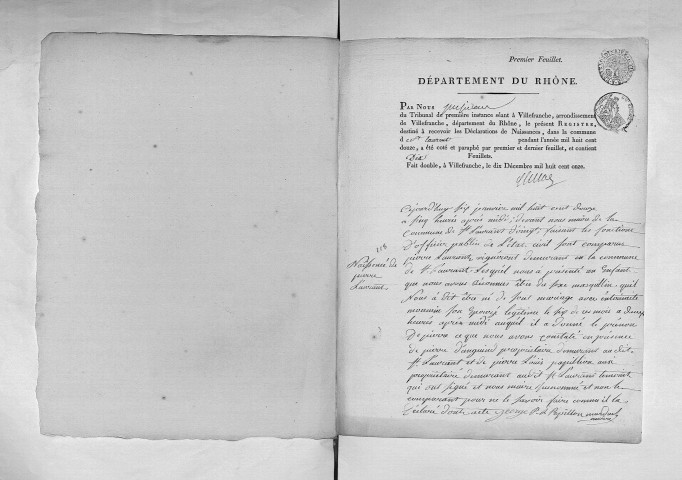 Premier Feuillet.
DÉPARTEMENT DU RHÔNE.
PAR NOUS president
du Tribunal de première instance séant à Villefranche, arrondissement
de Villefranche, département du Rhône, le présent REGISTRE,
destiné à recevoir les Déclarations de Naissances, dans la commune
d pendant l'année mil huit cent
douze, a été coté et paraphé par premier et dernier feuillet, et contient
Dix Feuillets.
Fait double, à Villefranche, le dix Décembre mil huit cent onze.
Naissance de
pierre
Laurent
aujourdhuy six janvier mil huit cent douze
à cinq heures après midi, devant nous maire de la
commune de St Laurent d'oingt faisant les fonctions
d'officier public de l'état civil sont comparus
pierre Laurent vigneron demeurant en la commune
de St Laurent lesquel nous a présenté un enfant
que nous avons reconnus être du sexe masqullin, quil
Nous a dit être né de son mariage avec
son épouse légitime le six de ce mois à
heures après midi auquel il a donné le prénom
De pierre ce que nous avons constaté en présence
de pierre propriétaire demeurant audit
St Laurent et de pierre Louis papillon
propriétaire demeurant audit St Laurent temoins
qui ont signé et nous maire et non le
comparant pour ne le savoir faire comme il la
déclaré dont acte George P. L. Papillon
maire